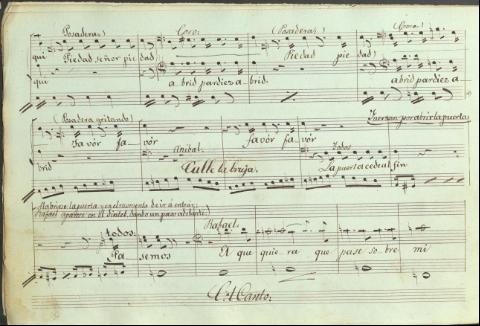 Posaderas) Coro) (Posaderas) Coro)
qui Piedad señor pie dad Piedad pie dad
qui a-brid pardiez a-brid. abrid pardiez a-
(Posadera gritando) Fuerzan por abrir la puerta
Favór fa- vór favór favór
brid Anibal. Todos
Calle la bruja. La puerta cede al fin
Al abrirse la puerta y en el momento de ir á entrar,
Rafael aparece en el dintel, dando un paso adelante.)
todos. Rafael.
Pa semos A que quie-ra que pase so-bre mi
Canto: